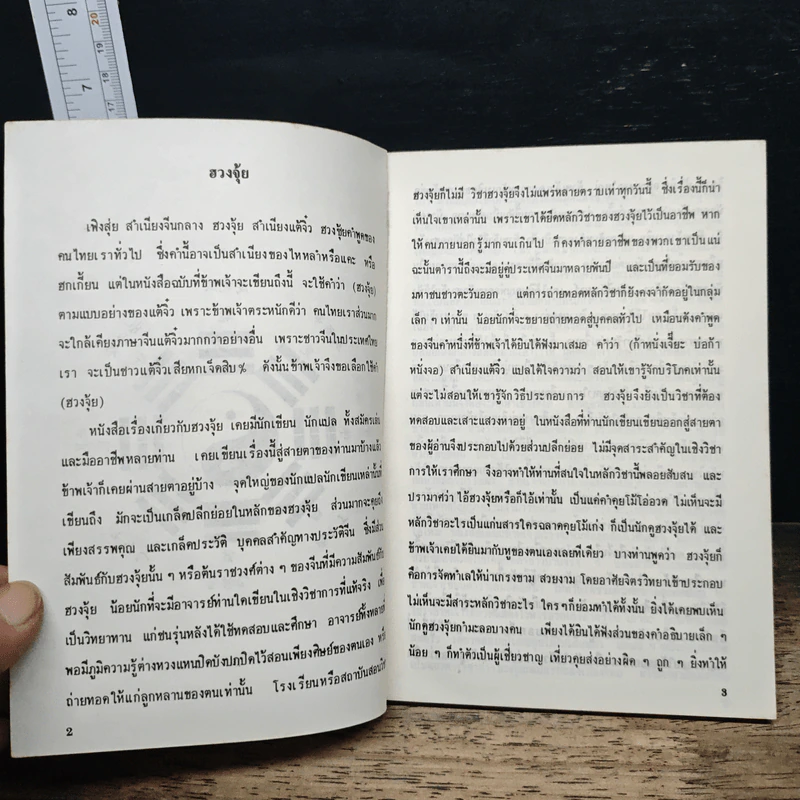 8
20
19
18
7
17
ฮวงจุ้ย
เฟิงสุ่ย สำเนียงจีนกลาง ฮวงจุ้ย สำเนียงแต้จิ๋ว ฮวงซุ้ยคำพูดของ
คนไทยเราทั่วไป ซึ่งคำนี้อาจเป็นสำเนียงของไหหลำหรือแคะ หรือ
ฮกเกี้ยน แต่ในหนังสือฉบับที่ข้าพเจ้าจะเขียนถึงนี้ จะใช้คำว่า (ฮวงจุ้ย)
ตามแบบอย่างของแต้จิ๋ว เพราะข้าพเจ้าตระหนักดีว่า คนไทยเราส่วนมาก
จะใกล้เคียงภาษาจีนแต้จิ๋วมากกว่าอย่างอื่น เพราะชาวจีนในประเทศไทย
เรา จะเป็นชาวแต้จิ๋วเสียหกเจ็ดสิบ% ดังนั้นข้าพเจ้าจึงขอเลือกใช้คำ
(ฮวงจุ้ย)
หนังสือเรื่องเกี่ยวกับฮวงจุ้ย เคยมีนักเขียน นักแปล ทั้งสมัครเล่น
และมืออาชีพหลายท่าน เคยเขียนเรื่องนี้สู่สายตาของท่านมาบ้างแล้ว
ข้าพเจ้าก็เคยผ่านสายตาอยู่บ้าง จุดใหญ่ของนักแปลนักเขียนเหล่านั้นที่
เขียนถึง มักจะเป็นเกล็ดปลีกย่อยในหลักของฮวงจุ้ย ส่วนมากจะคุยถึง
เพียงสรรพคุณ และเกล็ดประวัติ บุคคลสำคัญทางประวัติจีน ซึ่งมีส่วน
สัมพันธ์กับฮวงจุ้ยนั้น ๆ หรือต้นราชวงศ์ต่าง ๆ ของจีนที่มีความสัมพันธ์กับ
ฮวงจุ้ย น้อยนักที่จะมีอาจารย์ท่านใดเขียนในเชิงวิชาการที่แท้จริง เพื่อ
เป็นวิทยาทาน แก่ชนรุ่นหลังได้ใช้ทดสอบและศึกษา อาจารย์ทั้งหลายที่
พอมีภูมิความรู้ต่างหวงแหนปิดบังปกปิดไว้สอนเพียงศิษย์ของตนเอง หรือ
ถ่ายทอดให้แก่ลูกหลานของตนเท่านั้น โรงเรียนหรือสถาบันสอนวิชา
2
ฮวงจุ้ยก็ไม่มี วิชาฮวงจุ้ยจึงไม่แพร่หลายตราบเท่าทุกวันนี้ ซึ่งเรื่องนี้ก็น่า
เห็นใจเขาเหล่านั้น เพราะเขาได้ยึดหลักวิชาของฮวงจุ้ยไว้เป็นอาชีพ หาก
ให้คนภายนอกรู้มากจนเกินไป ก็คงทำลายอาชีพของพวกเขาเป็นแน่
ฉะนั้นตำรานี้ถึงจะมีอยู่คู่ประเทศจีนมาหลายพันปี และเป็นที่ยอมรับของ
มหาชนชาวตะวันออก แต่การถ่ายทอดหลักวิชาก็ยังคงจำกัดอยู่ในกลุ่ม
เล็ก ๆ เท่านั้น น้อยนักที่จะขยายถ่ายทอดสู่บุคคลทั่วไป เหมือนดังคำพูด
ของจีนคำหนึ่งที่ข้าพเจ้าได้ยินได้ฟังมาเสมอ คำว่า (ก้าหนั่งเจี๊ยะ บ่อก้า
หนั่งจอ) สำเนียงแต้จิ๋ว แปลได้ใจความว่า สอนให้เขารู้จักบริโภคเท่านั้น
แต่จะไม่สอนให้เขารู้จักวิธีประกอบการ ฮวงจุ้ยจึงยังเป็นวิชาที่ต้อง
ทดสอบและเสาะแสวงหาอยู่ ในหนังสือที่ท่านนักเขียนเขียนออกสู่สายตา
ของผู้อ่านจึงประกอบไปด้วยส่วนปลีกย่อย ไม่มีจุดสาระสำคัญในเชิงวิชา
การให้เราศึกษา จึงอาจทำให้ท่านที่สนใจในหลักวิชานี้พลอยสับสน และ
ปรามาศว่า ไอ้ฮวงจุ้ยหรือก็ไอ้เท่านั้น เป็นแค่คำคุยโม้โอ่อวด ไม่เห็นจะมี
หลักวิชาอะไรเป็นแก่นสารใครฉลาดคุยโม้เก่ง ก็เป็นนักดูฮวงจุ้ยได้ และ
ข้าพเจ้าเคยได้ยินมากับหูของตนเองเลยทีเดียว บางท่านพูดว่า ฮวงจุ้ยก็
คือการจัดทำเลให้น่าเกรงขาม สวยงาม โดยอาศัยจิตรวิทยาเข้าประกอบ
ไม่เห็นจะมีสาระหลักวิชาอะไร ใคร ๆ ก็ย่อมทำได้ทั้งนั้น ยิ่งได้เคยพบเห็น
นักดูฮวงจุ้ยกำมะลอบางคน เพียงได้ยินได้ฟังส่วนของคำอธิบายเล็ก ๆ
น้อย ๆ ก็ทำตัวเป็นผู้เชี่ยวชาญ เที่ยวคุยส่งอย่างผิด ๆ ถูก ๆ ยิ่งทำให้
3